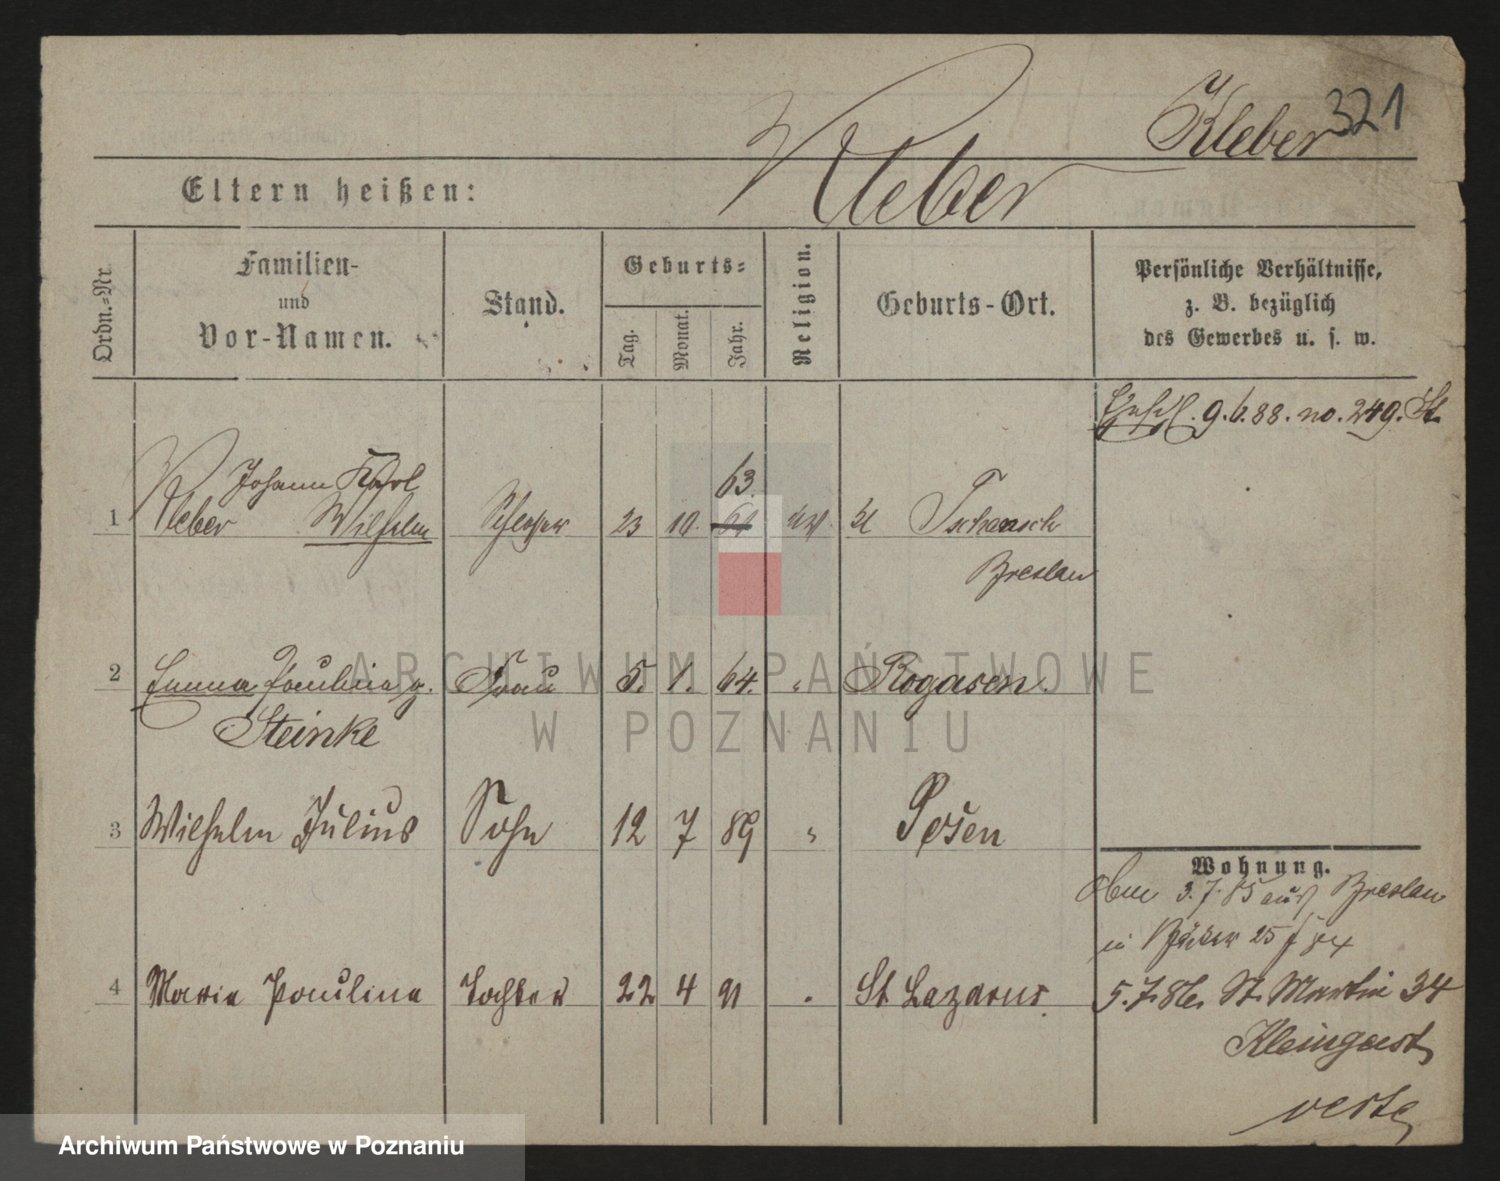 Kleber 321
Kleber
Eltern heißen:
Ordn.-Nr.
Familien-
und
Vor-Namen.
Stand.
Geburts-
Tag.
Monat.
Jahr.
Religion.
Geburts-Ort.
Persönliche Verhältnisse,
z. B. bezüglich
des Gewerbes u. s. w.
9.6.88. no. 249. St.
Johann Karl 63.
1 Kleber Wilhelm Schlosser 23 10. 61 ev Kl Tschansch
Breslau
2 Emma Paulina g. Frau 5. 1. 64. " Rogasen.
Steinke
3 Wilhelm Julius Sohn 12 7 89 " Posen
Wohnung.
3.7.85 aus Breslau
in 25
4 Maria Paulina Tochter 22 4 91 " St Lazarus.
5.7.86. St. Martin 34
Kleingast
verte
ARCHIWUM PAŃSTWOWE
W POZNANIU
Archiwum Państwowe w Poznaniu